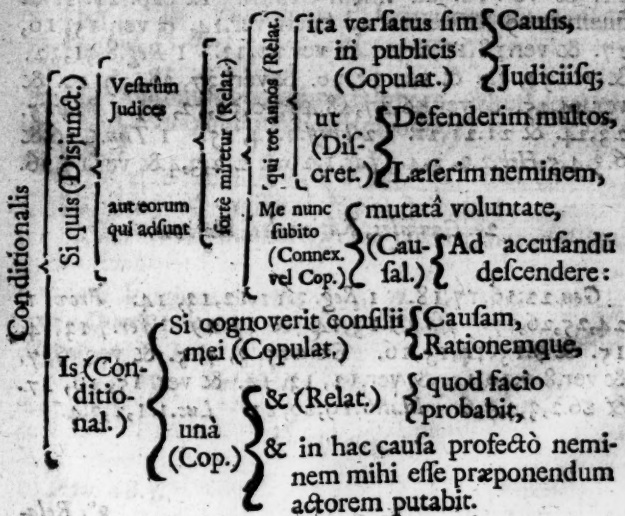 Conditionalis
Si quis (Disjunct.)
Veſtrûm
Judices
aut eorum
qui adſunt
fortè miretur (Relat.)
qui tot annos (Relat.)
ita verſatus ſim
in publicis
(Copulat.)
Cauſis,
Judiciiſq;
ut
(Diſ-
cret.)
Defenderim multos,
Læſerim neminem,
Me nunc
ſubito
(Connex.
vel Cop.)
mutatâ voluntate,
(Cau-
ſal.)
Ad accuſandū
deſcendere:
Is (Con-
ditio-
nal.)
Si cognoverit conſilii
mei (Copulat.)
Cauſam,
Rationemque,
unà
(Cop.)
& (Relat.)
quod facio
probabit,
& in hac cauſa profectò nemi-
nem mihi eſſe præponendum
actorem putabit.